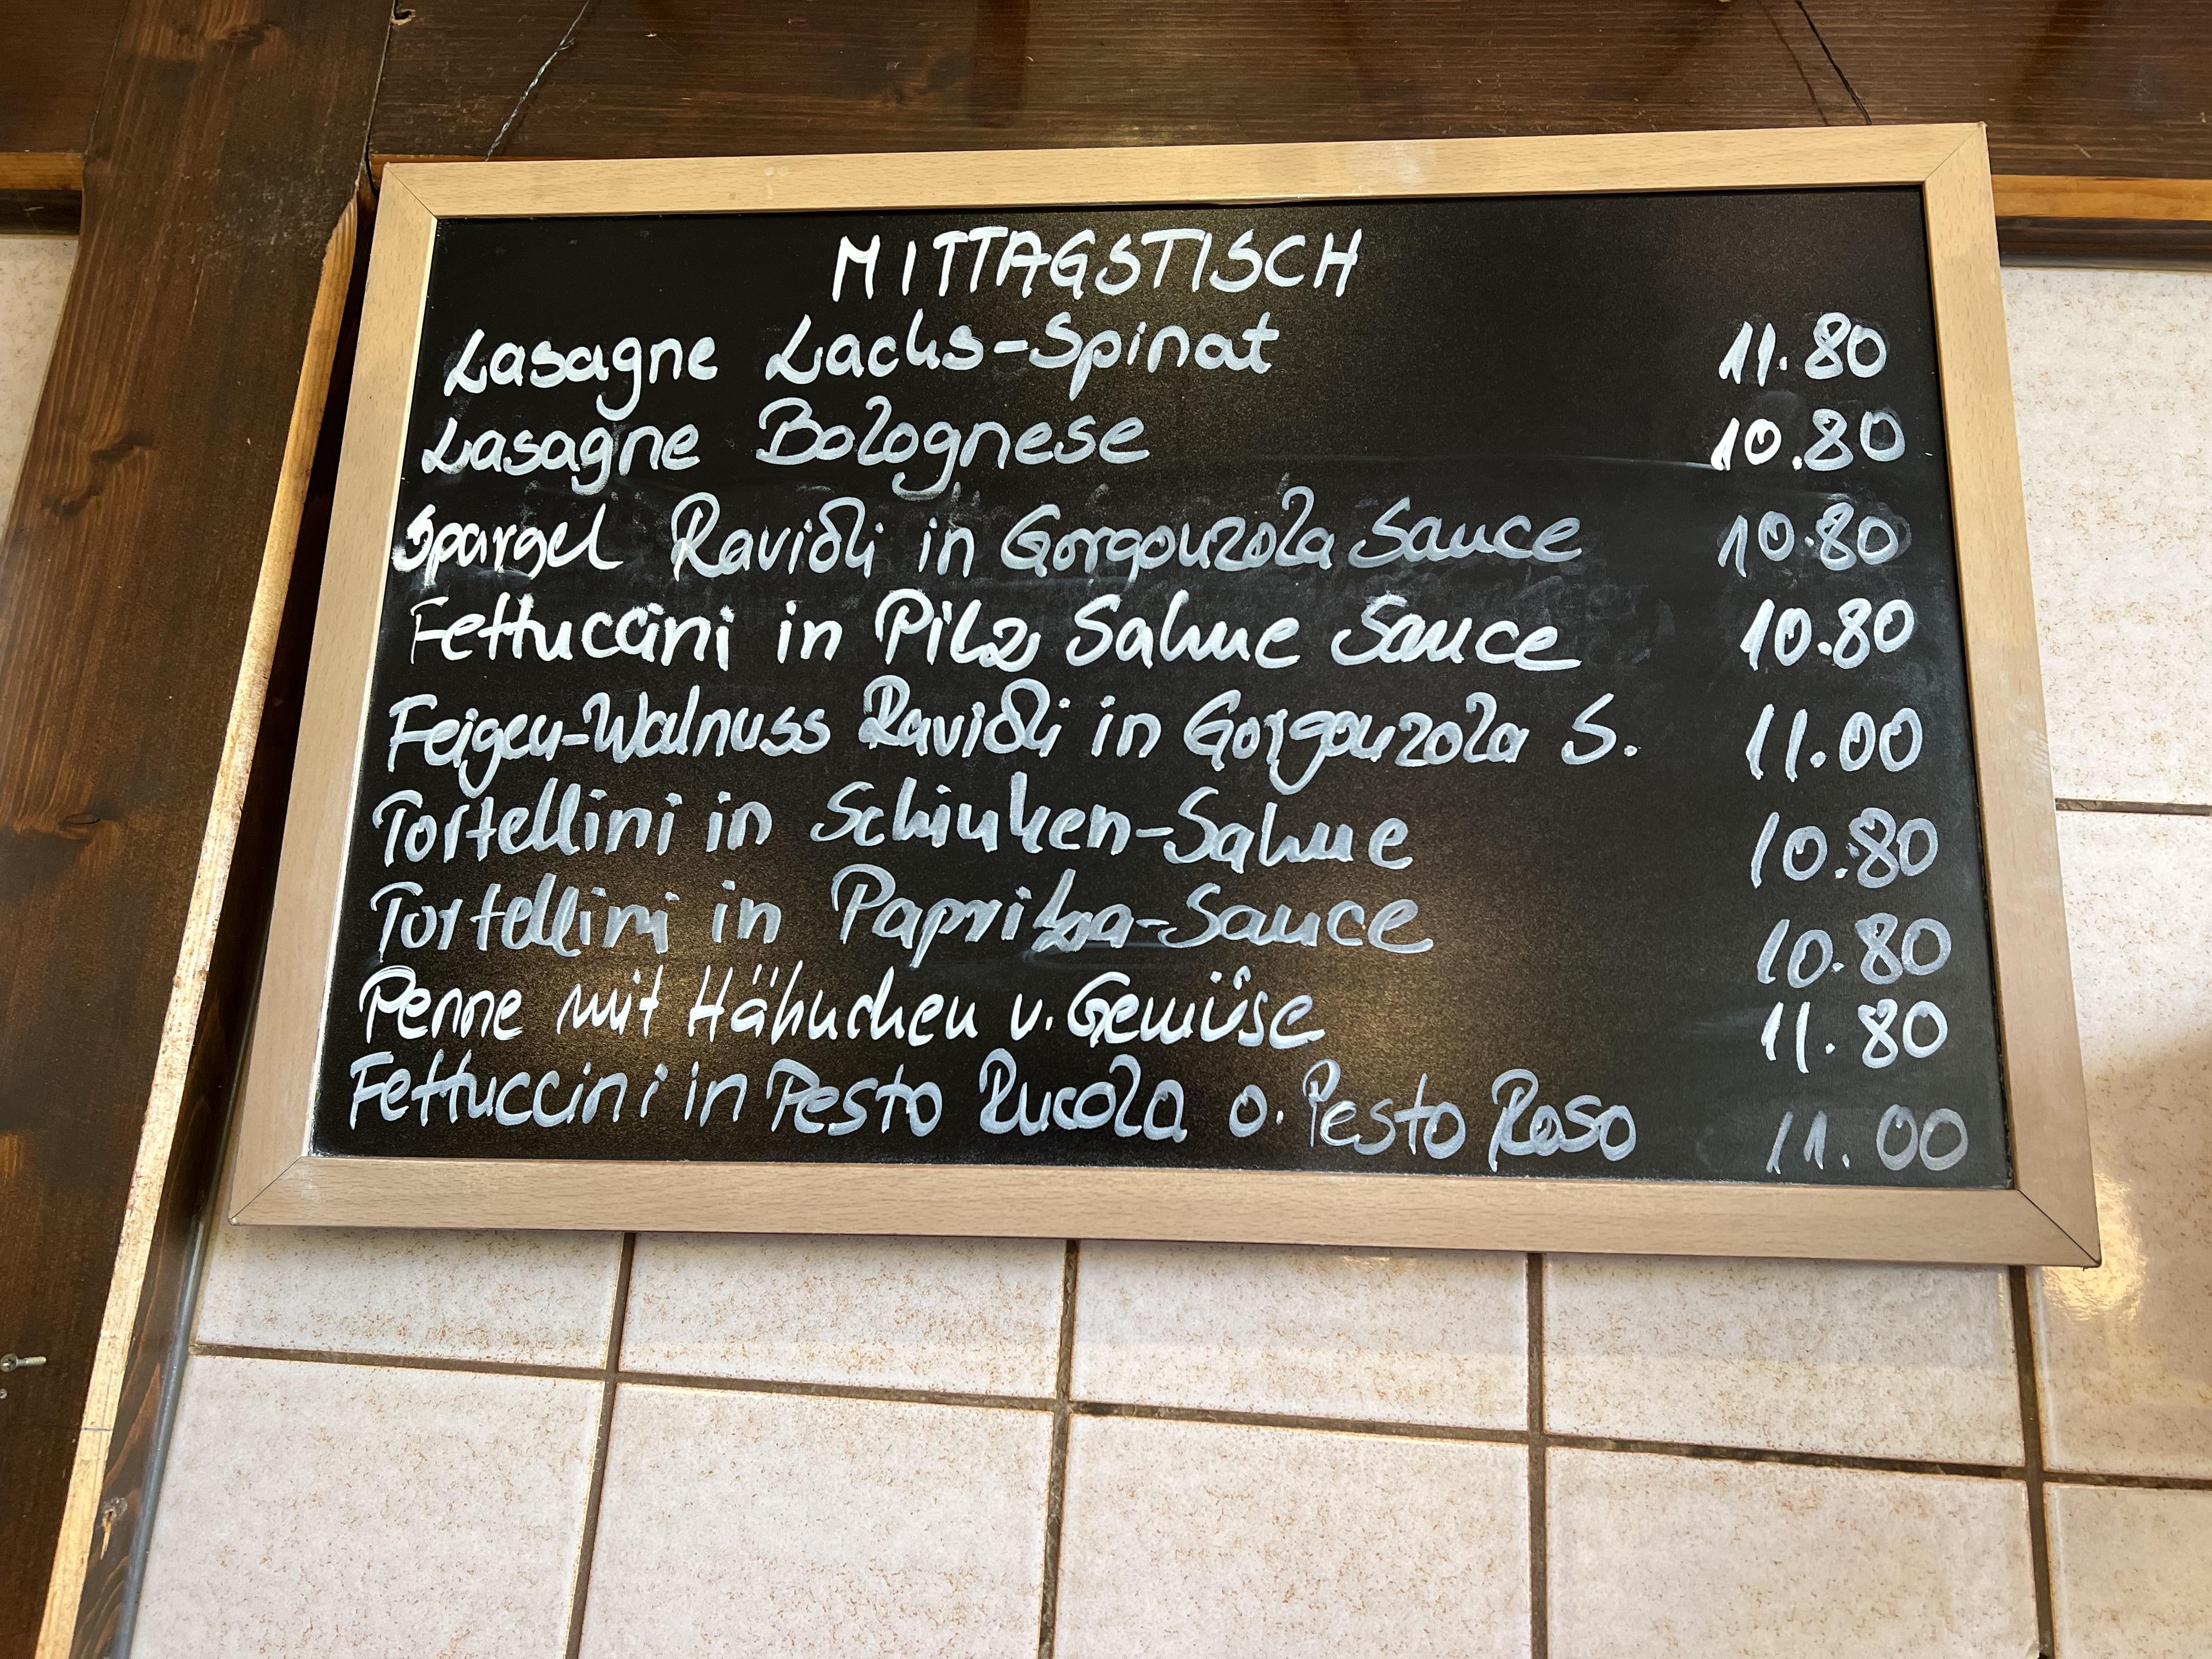 MITTAGSTISCH
Lasagne Lachs-Spinat 11.80
Lasagne Bolognese 10.80
Spargel Ravioli in Gorgonzola Sauce 10.80
Fettuccini in Pilz Sahne Sauce 10.80
Feigen-Walnuss Ravioli in Gorgonzola S. 11.00
Tortellini in Schinken-Sahne 10.80
Tortellini in Paprika-Sauce 10.80
Penne mit Hähnchen u. Gemüse 11.80
Fettuccini in Pesto Rucola o. Pesto Roso 11.00